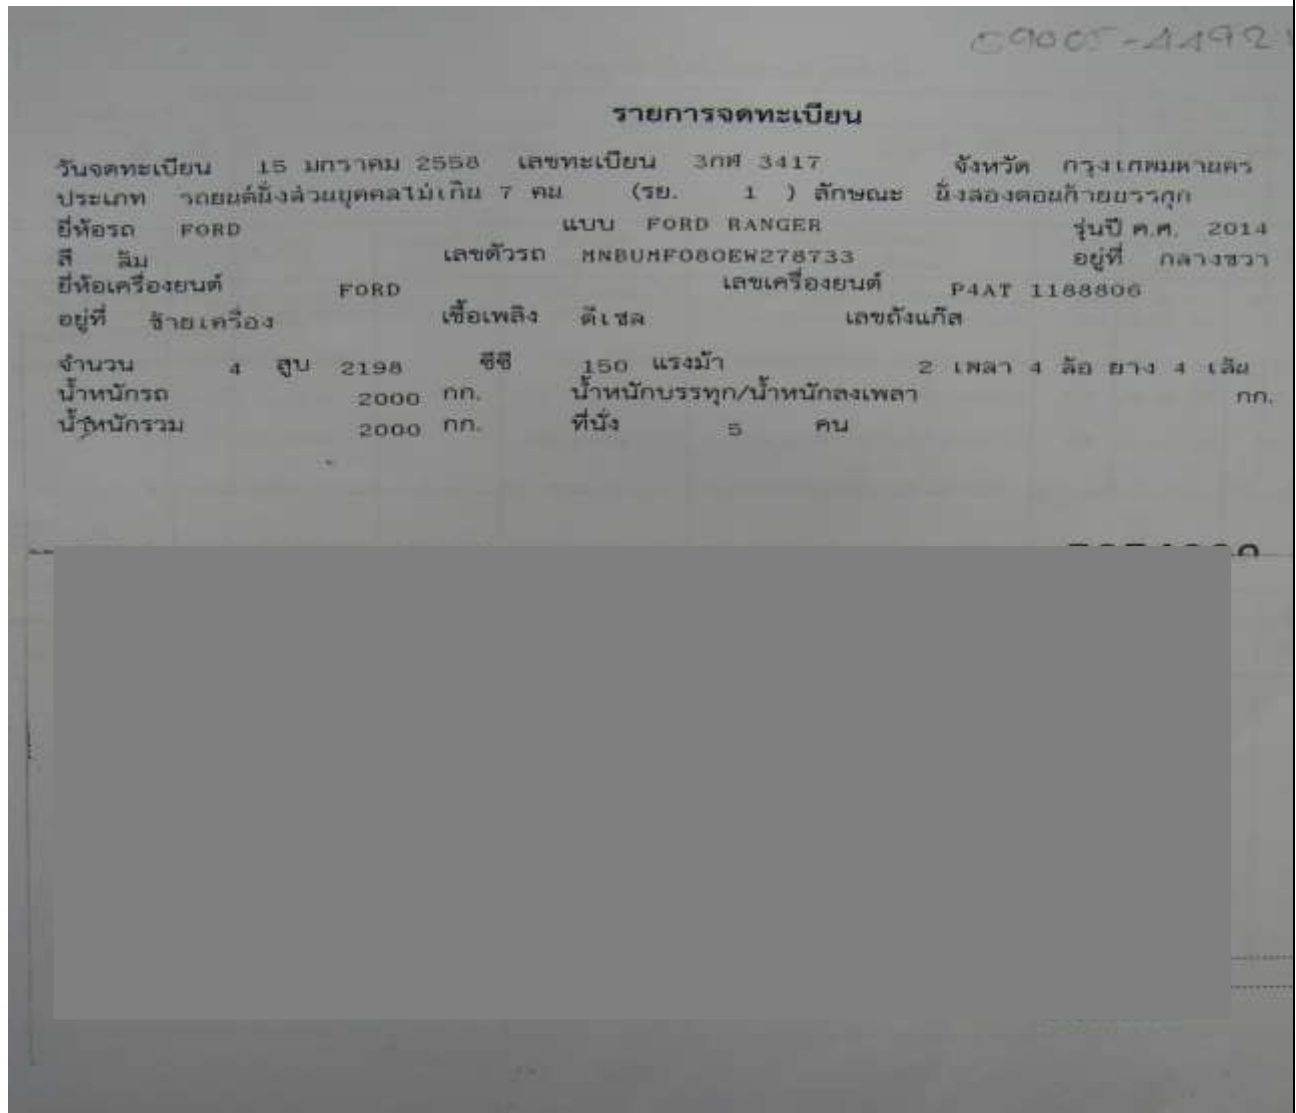 รายการจดทะเบียน
วันจดทะเบียน 15 มกราคม 2558 เลขทะเบียน 3กศ 3417 จังหวัด กรุงเทพมหานคร
ประเภท รถยนต์นั่งส่วนบุคคลไม่เกิน 7 คน (รย. 1 ) ลักษณะ นั่งสองตอนท้ายบรรทุก
ยี่ห้อรถ FORD แบบ FORD RANGER รุ่นปี ค.ศ. 2014
สี ส้ม เลขตัวรถ MNBUMF080EW278733 อยู่ที่ กลางขวา
ยี่ห้อเครื่องยนต์ FORD เลขเครื่องยนต์ P4AT 1188806
อยู่ที่ ซ้ายเครื่อง เชื้อเพลิง ดีเซล เลขถังแก๊ส
จำนวน 4 สูบ 2198 ซีซี 150 แรงม้า 2 เพลา 4 ล้อ ยาง 4 เส้น
น้ำหนักรถ 2000 กก. น้ำหนักบรรทุก/น้ำหนักลงเพลา กก.
น้ำหนักรวม 2000 กก. ที่นั่ง 5 คน